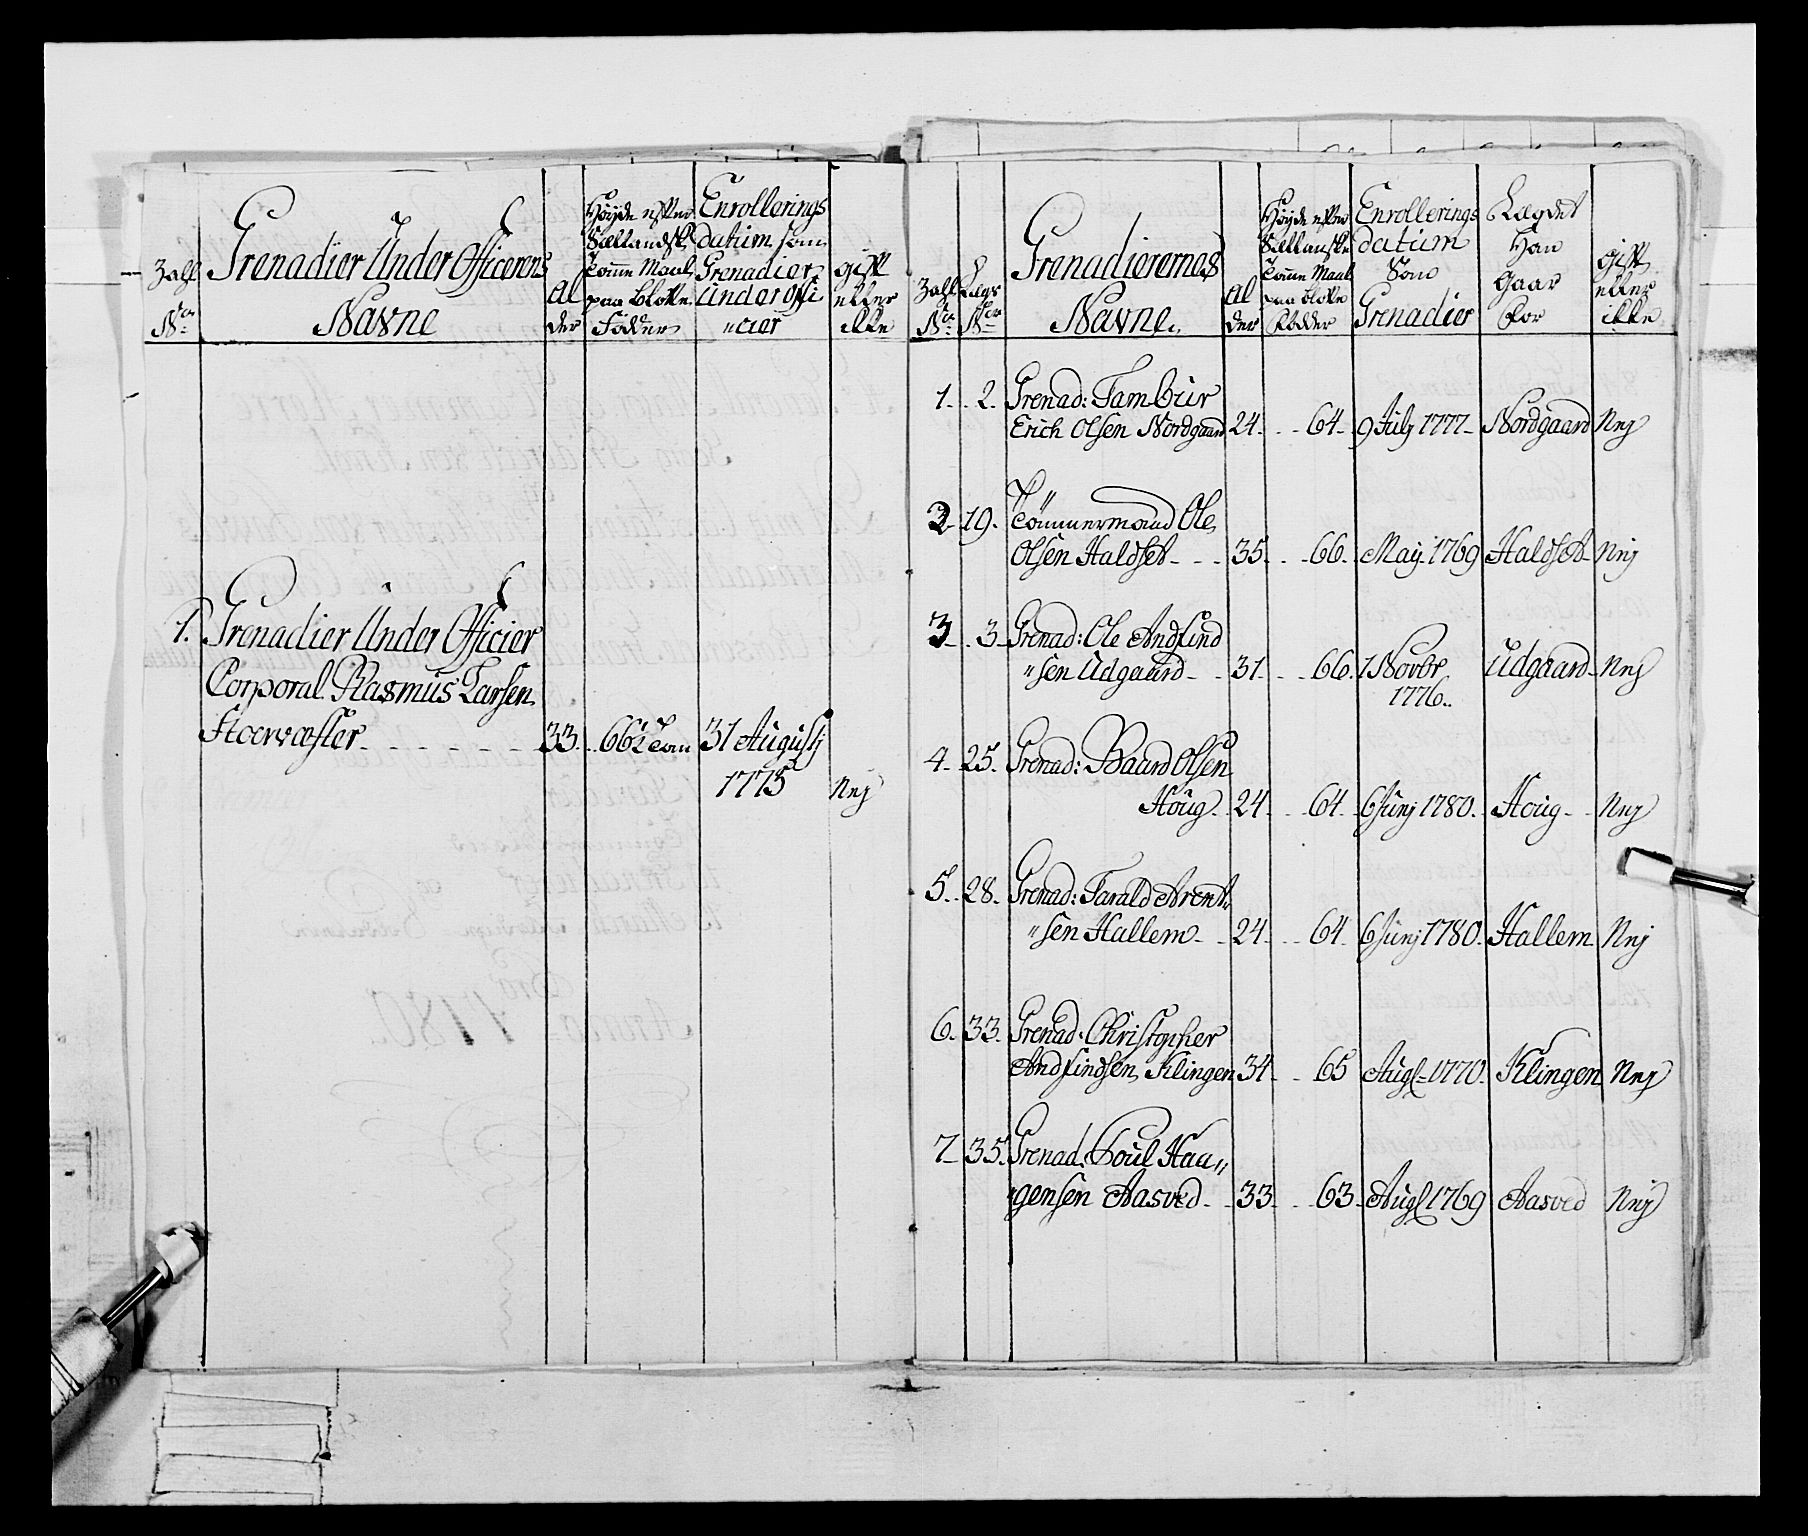 Zahl
Nr
Grenadier Under Officerens
Navne
Al
der
Høyde efter
Sællandsk
Tomme Maal
paa blotte
Födder
Enrollerings
datum som
Grenadier
Under offi
"cier
gift
eller
ikke
1. Grenadier Under Officier
Corporal Rasmus Larsen
Stoervæsler - - - - - - 33 - 66½ Tom 31 Augustj
1775 Nej
Zahl
Nr
Lægs
Nr
Grenadierernes
Navne.
Al
der
Høyde efter
Sællanske
Tomme Maal
paa blotte
Födder
Enrollerings
datum
Som
Grenadier
Lægdet
Han
gaar
for
gift
eller
ikke
1. . 2. Grenad: Tambur
Erich Olsen Nordgaard 24. . . 64. 9 July 1777. Nordgaard Nej
2. 19. Tömmermand Ole
Olsen Haldset - - - 35. . . 66. May. 1769 Haldset - Nej
3. . 3. Grenad: Ole Andfind
"sen Udgaard - - 31. . . 66. 1 Novbr
1776. Udgaard - Nej
4. 25. Grenad: Baard Olsen
Houg. 24. . . 64. 6 Junj 1780. Houg - - Nej
5. . 28. Grenad: Tarald Arent
"sen Hallem - - 24. . . 64. 6 Junj 1780. Hallem Nej
6. 33. Grenad. Christopher
Andfindsen Klingen 34. . . 65 Augs - 1770. Klingen Nej
7. 35. Grenad. Poul Haa"
"gensen Aasved - - 33. . . 63. Augs 1769 Aasved Nej